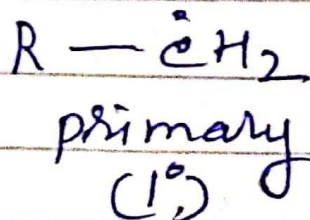 R — ĊH₂
primary
(1°)